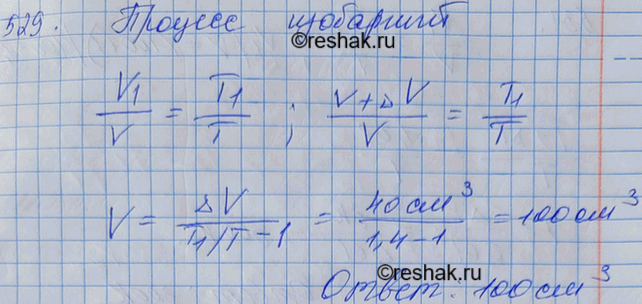 529. Процесс изобарный
©reshak.ru
V1/V = T1/T ; (V+ΔV)/V = T1/T
V = ΔV/(T1/T - 1) = 40 см³/(1,4-1) = 100 см³
©reshak.ru
Ответ: 100 см³